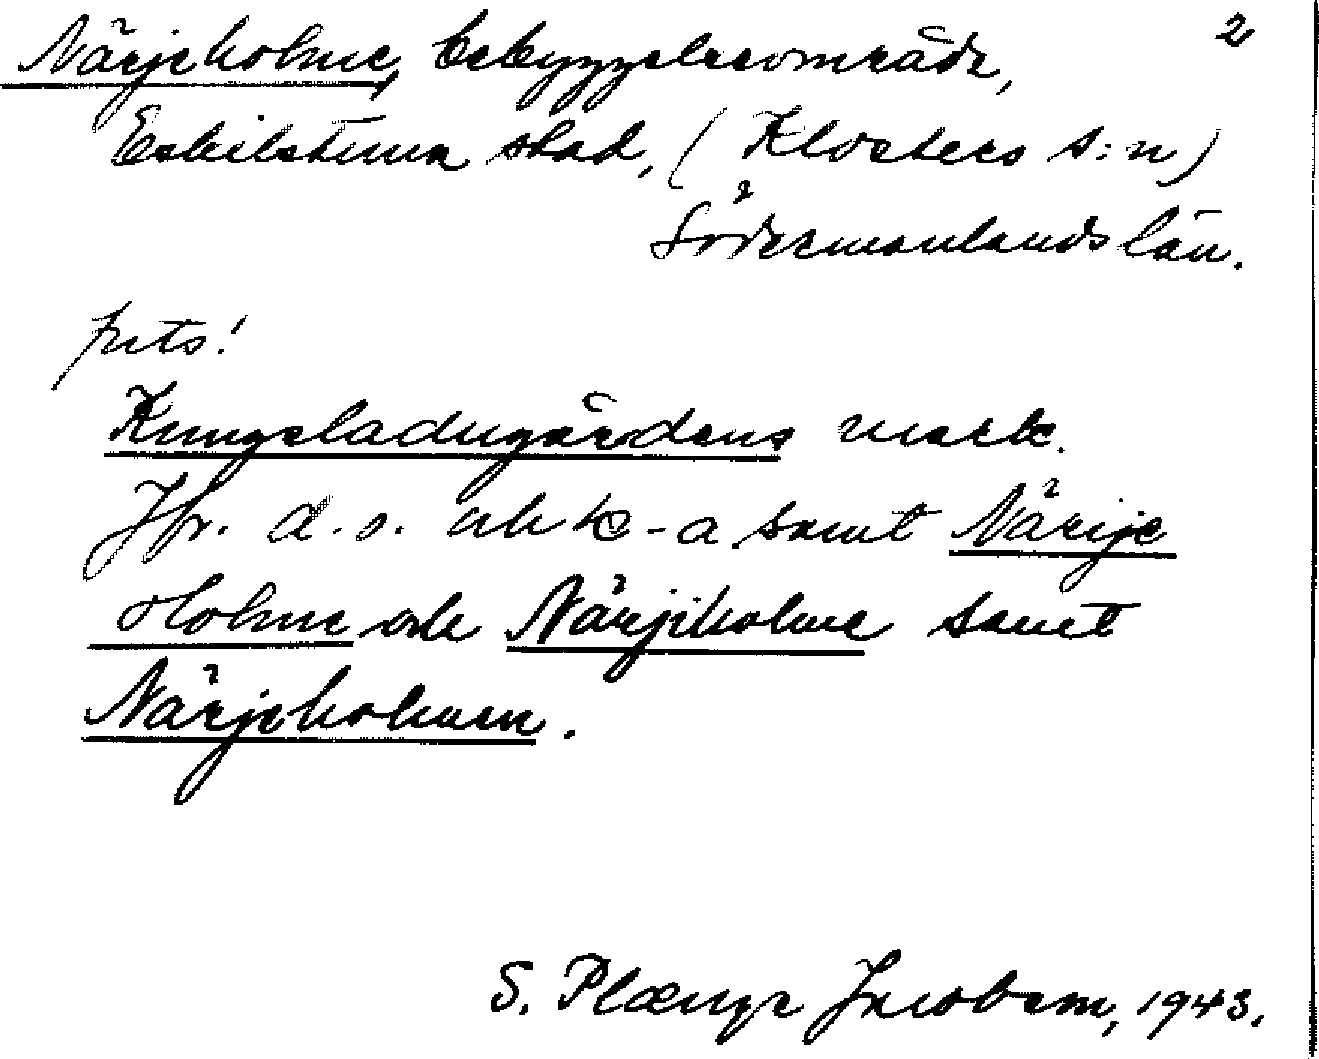 Närjeholme, bebyggelseområde, 2
Eskilstuna stad, (Klosters s:n)
Södermanlands län.
forts!
Kungsladugårdens mark.
Jfr. d. o. och k-a samt Närije
Holme och Närjiholme samt
Närjeholmen.
S. Plænge Jacobson, 1943.